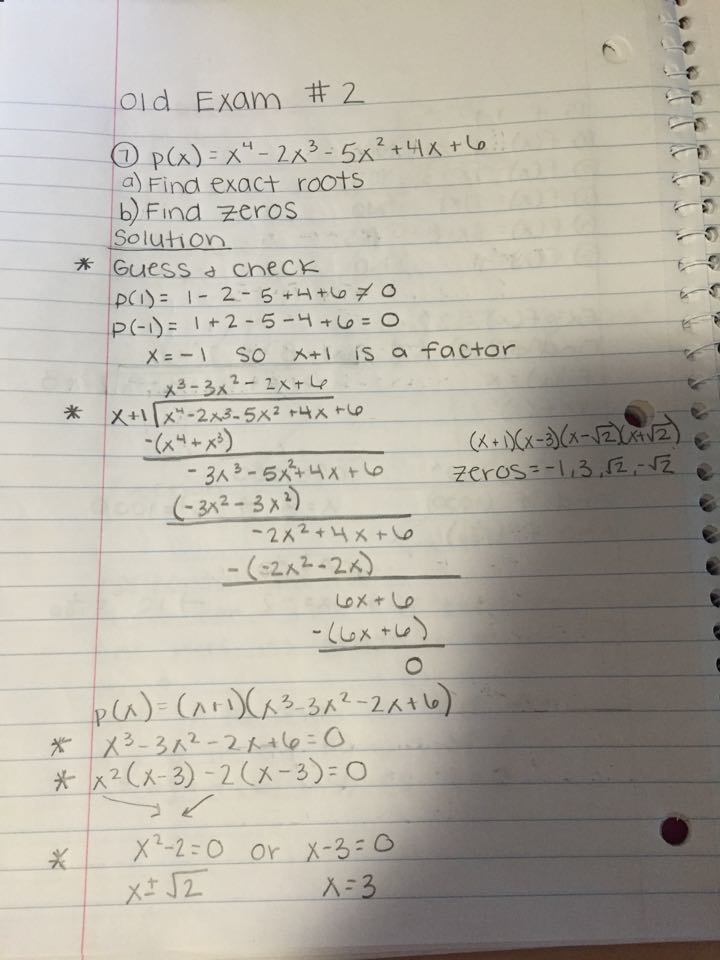 Old Exam #2
⑦ p(x) = x⁴ - 2x³ - 5x² + 4x + 6
a) Find exact roots
b) Find zeros
Solution
* Guess & check
p(1) = 1 - 2 - 5 + 4 + 6 ≠ 0
p(-1) = 1 + 2 - 5 - 4 + 6 = 0
x = -1 so x+1 is a factor
x³ - 3x² - 2x + 6
* x+1 √x⁴ - 2x³ - 5x² + 4x + 6
-(x⁴ + x³)
- 3x³ - 5x² + 4x + 6
(-3x² - 3x²)
-2x² + 4x + 6
-(-2x² - 2x)
6x + 6
-(6x + 6)
0
(x+1)(x-3)(x-√2)(x+√2)
zeros = -1, 3, √2, -√2
p(x) = (x+1)(x³ - 3x² - 2x + 6)
* x³ - 3x² - 2x + 6 = 0
* x²(x-3) - 2(x-3) = 0
* x² - 2 = 0 or x - 3 = 0
x ± √2 x = 3